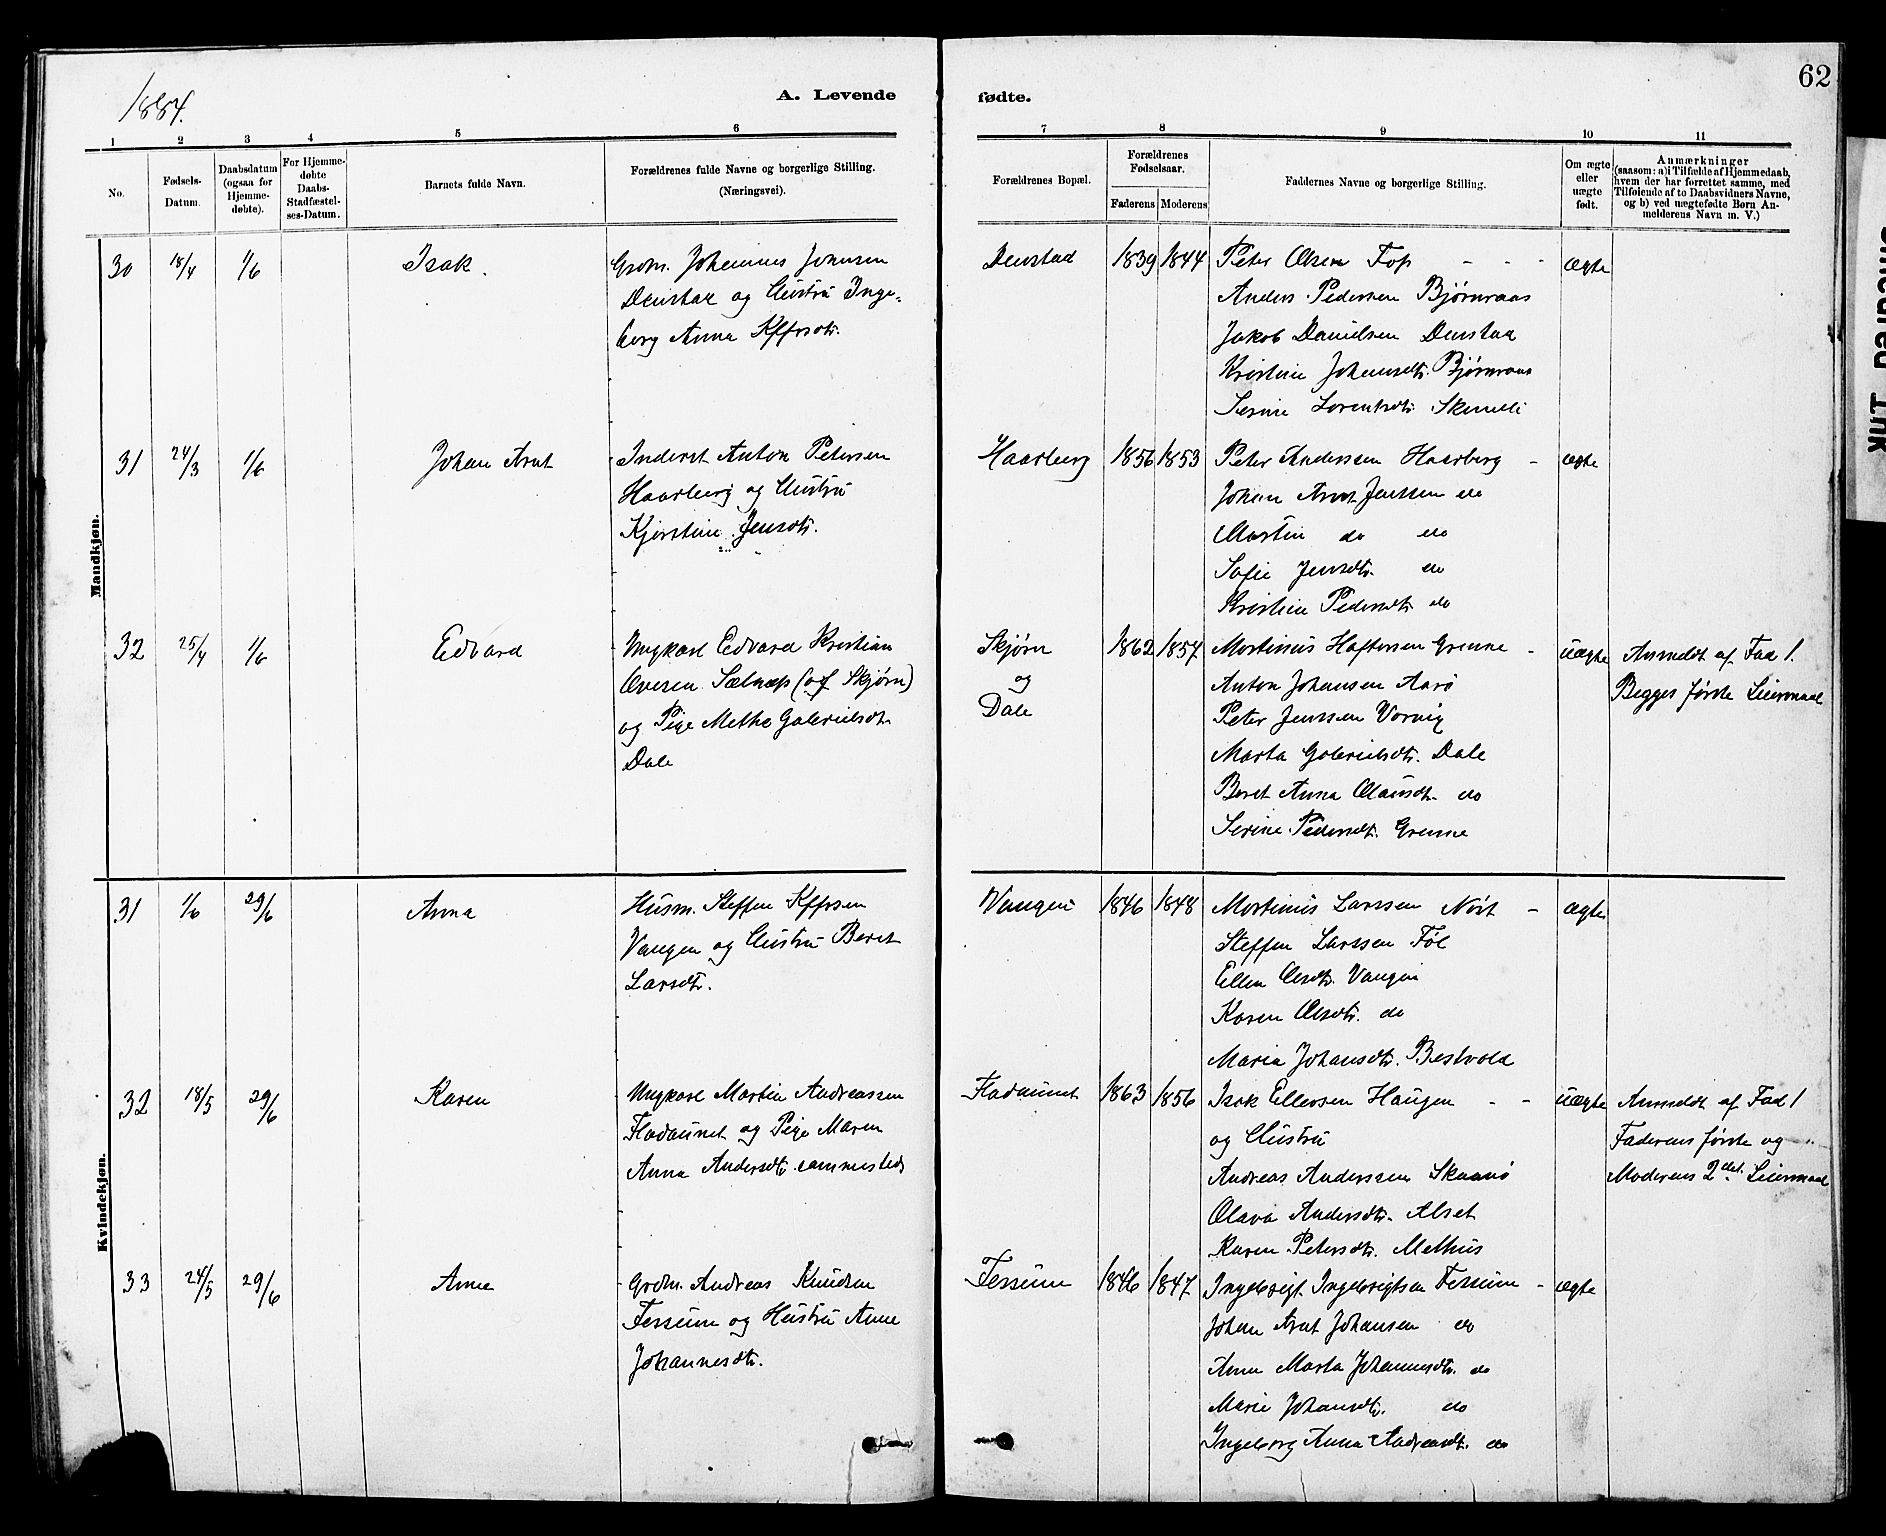 1884.
A. Levende
fødte.
62
1 2 3 4 5 6
7 8 9 10 11
No.
Fødsels-
Datum.
Daabsdatum
(ogsaa for
Hjemme-
døbte).
For Hjemme-
døbte
Daabs-
Stadfæstel-
ses-Datum.
Barnets fulde Navn.
Forældrenes fulde Navne og borgerlige Stilling.
(Næringsvei).
Forældrenes Bopæl.
Forældrenes
Fødselsaar.
Faderens Moderens
Faddernes Navne og borgerlige Stilling.
Om ægte
eller
uægte
født.
Anmærkninger
(saasom: a) i Tilfælde af Hjemmedaab,
hvem der har forrettet samme, med
Tilføiende af to Daabsvidners Navne,
og b) ved uægtefødte Børn An-
melderens Navn m. V.)
Mandkjøn.
30 18/4 1/6 Isak.
Grdm. Johannes Jonnsen
Denstad og Hustru Inge-
borg Anna Kffrsdtr.
Denstad 1839 1844
Peter Olsen Fop - - -
Anders Pedersen Bjørnraas
Jakob Danielsen Denstad
Kristine Johansdtr. Bjørnraas
Serine Lorentsdtr.
ægte
31 24/3 1/6 Johan Arnt
Inderst Anton Petersen
Haarberg og Hustru
Kjerstine Jensdtr.
Haarberg 1856 1853
Peter Anderssen Haarberg -
Johan Arnt Jenssen do
Martin do do
Sofie Jensdtr. do
Kristine Pedersdtr. do
ægte
32 25/4 1/6 Edvard
Ungkarl Edvard Kristian
Oversen Selnæs (af Skjørn)
og Pige Methe Gabrielsdtr.
Dale
Skjørn
og
Dale
1862 1857
Mortinus Haftorsen Grenne -
Anton Johansen Aarø
Peter Jenssen Vorvig
Marta Gabrielsdtr. Dale
Beret Anna Olausdtr. do
Serine Pedersdtr. Grenne
uægte
Anmeldt af Fad 1.
Begges første Leiermaal
Kvindekjøn.
31 1/6 29/6 Anna
Husm. Steffen Kffrsen
Vangen og Hustru Beret
Larsdtr.
Vangen 1846 1848
Mortinus Larssen Nøst -
Steffen Larssen Føl
Ellen Olsdtr. Vangen
Karen Olsdtr. do
Maria Johansdtr. Bestvold
ægte
32 18/5 29/6 Karen
Ungkarl Martin Andreassen
Fladaunet og Pige Maren
Anna Andersdtr. sammesteds
Fladaunet 1863 1856
Isak Ellevsen Haugen - -
og Hustru
Andreas Anderssen Skaanø
Olava Andersdtr. Alset
Karen Petersdtr. Melhus
uægte
Anmeldt af Fad 1
Faderens første og
Moderens 2det Leiermaal
33 24/5 29/6 Anne
Grdm. Andreas Knudsen
Fessum og Hustru Anne
Johannesdtr.
Fessum 1846 1847
Ingebrigt Ingebrigtsen Fessum -
Johan Arnt Johansen do
Anne Marta Johannesdtr. do
Marie Johansdtr. do
Ingeborg Anna Andreasdtr. do
ægte